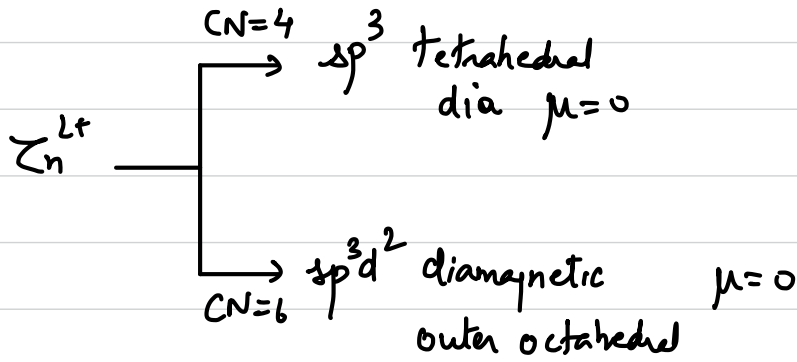 CN=4
sp³ tetrahedral
dia μ=0
Zn²⁺
sp³d² diamagnetic μ=0
CN=6
outer octahedral